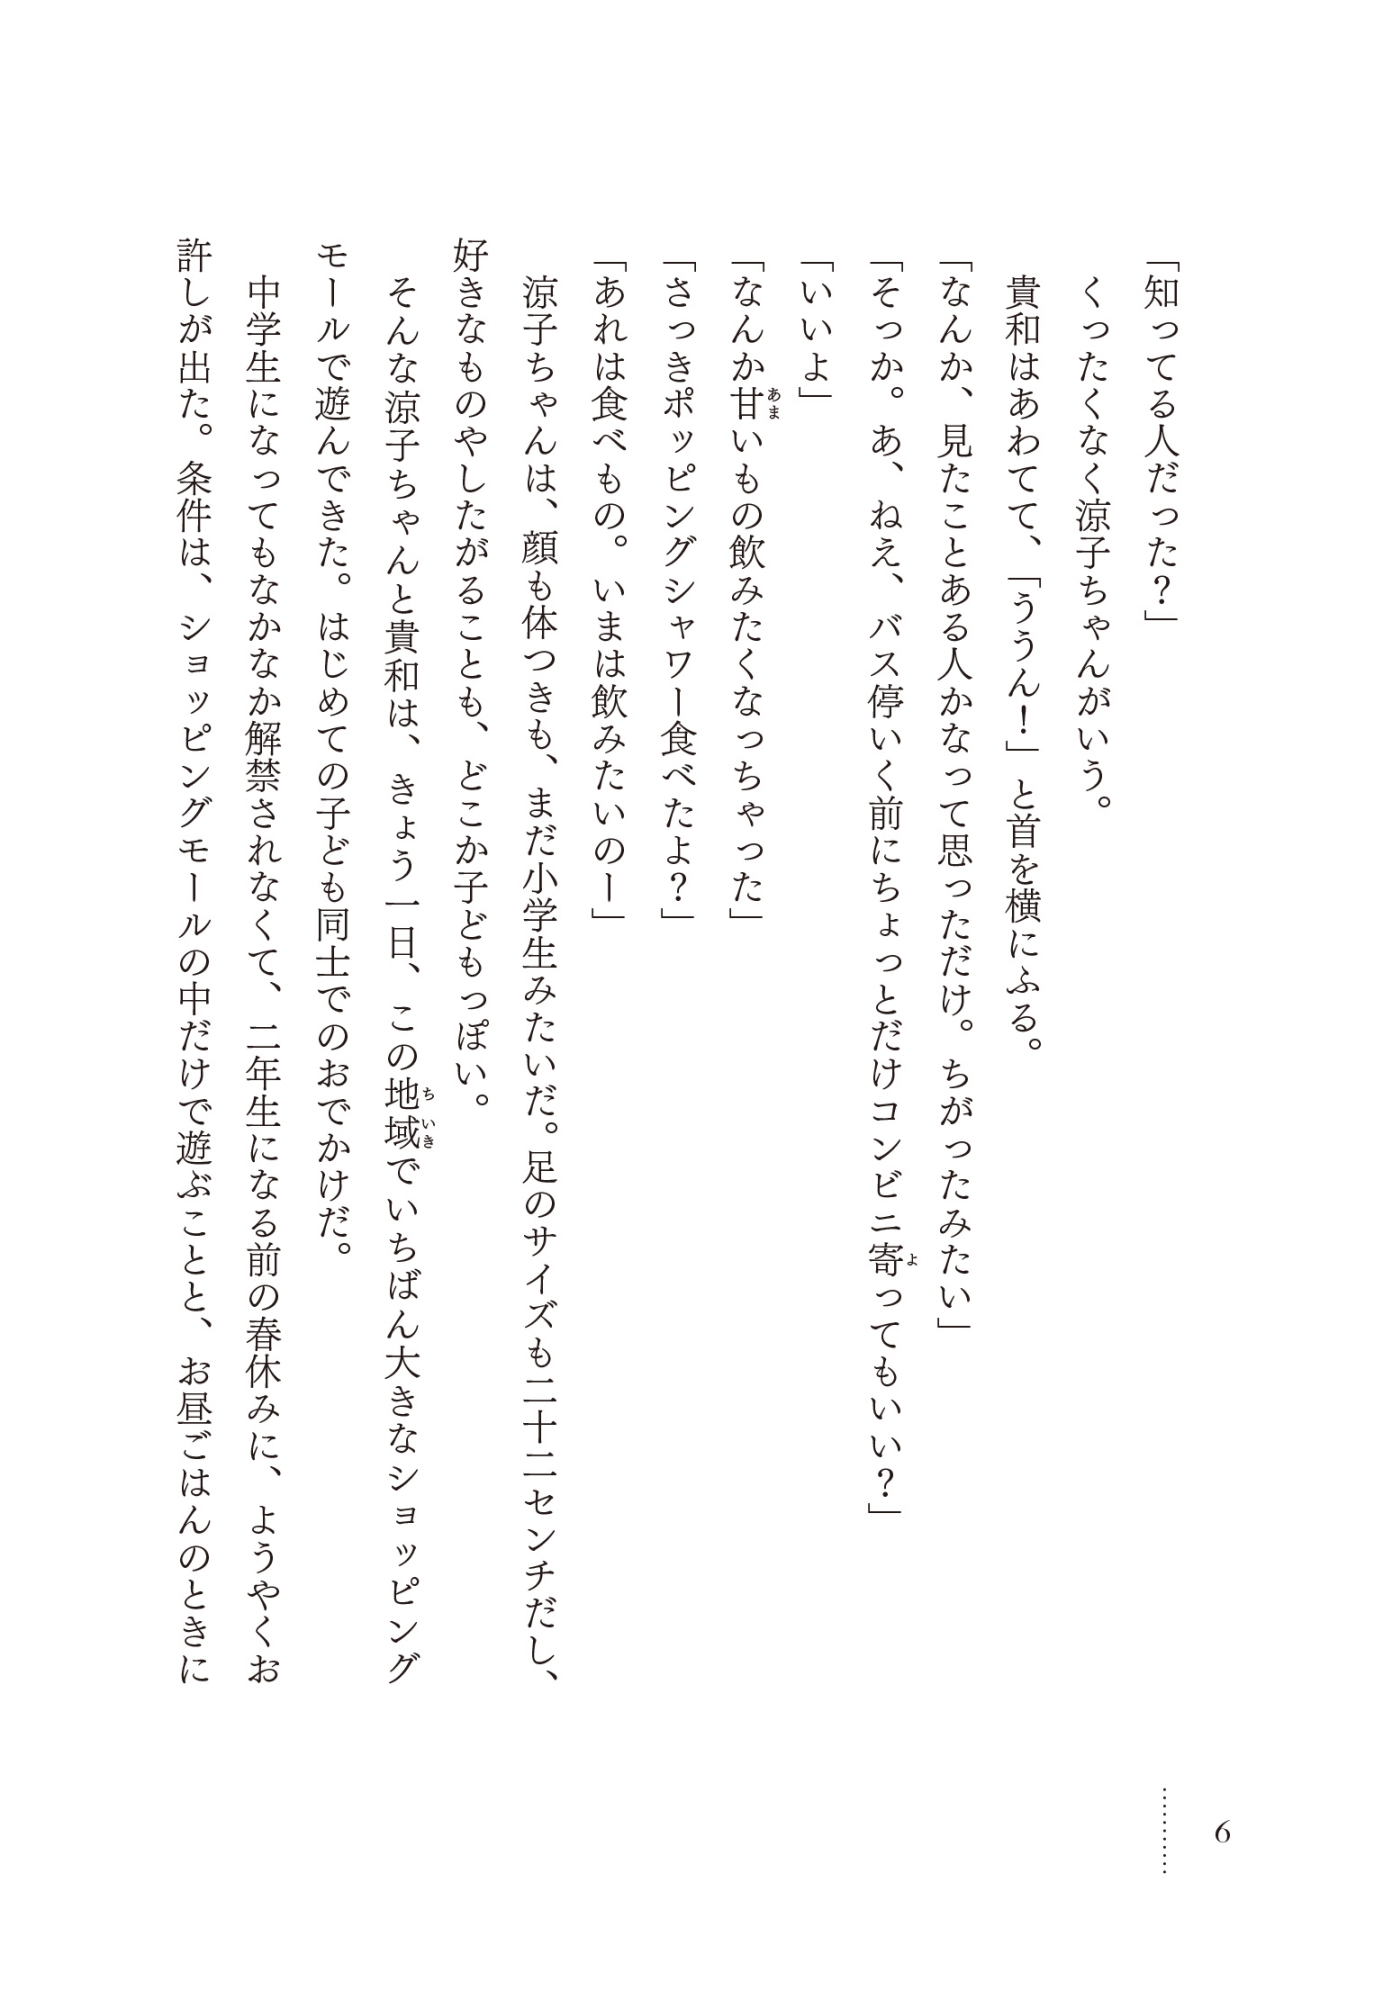 「知ってる人だった？」
くったくなく涼子ちゃんがいう。
貴和はあわてて、「ううん！」と首を横にふる。
「なんか、見たことある人かなって思っただけ。ちがったみたい」
「そっか。あ、ねえ、バス停いく前にちょっとだけコンビニ寄ってもいい？」
「いいよ」
「なんか甘いもの飲みたくなっちゃった」
「さっきポッピングシャワー食べたよ？」
「あれは食べもの。いまは飲みたいのー」
涼子ちゃんは、顔も体つきも、まだ小学生みたいだ。足のサイズも二十二センチだし、
好きなものやしたがることも、どこか子どもっぽい。
そんな涼子ちゃんと貴和は、きょう一日、この地域でいちばん大きなショッピング
モールで遊んできた。はじめての子ども同士でのおでかけだ。
中学生になってもなかなか解禁されなくて、二年生になる前の春休みに、ようやくお
許しが出た。条件は、ショッピングモールの中だけで遊ぶことと、お昼ごはんのときに
6